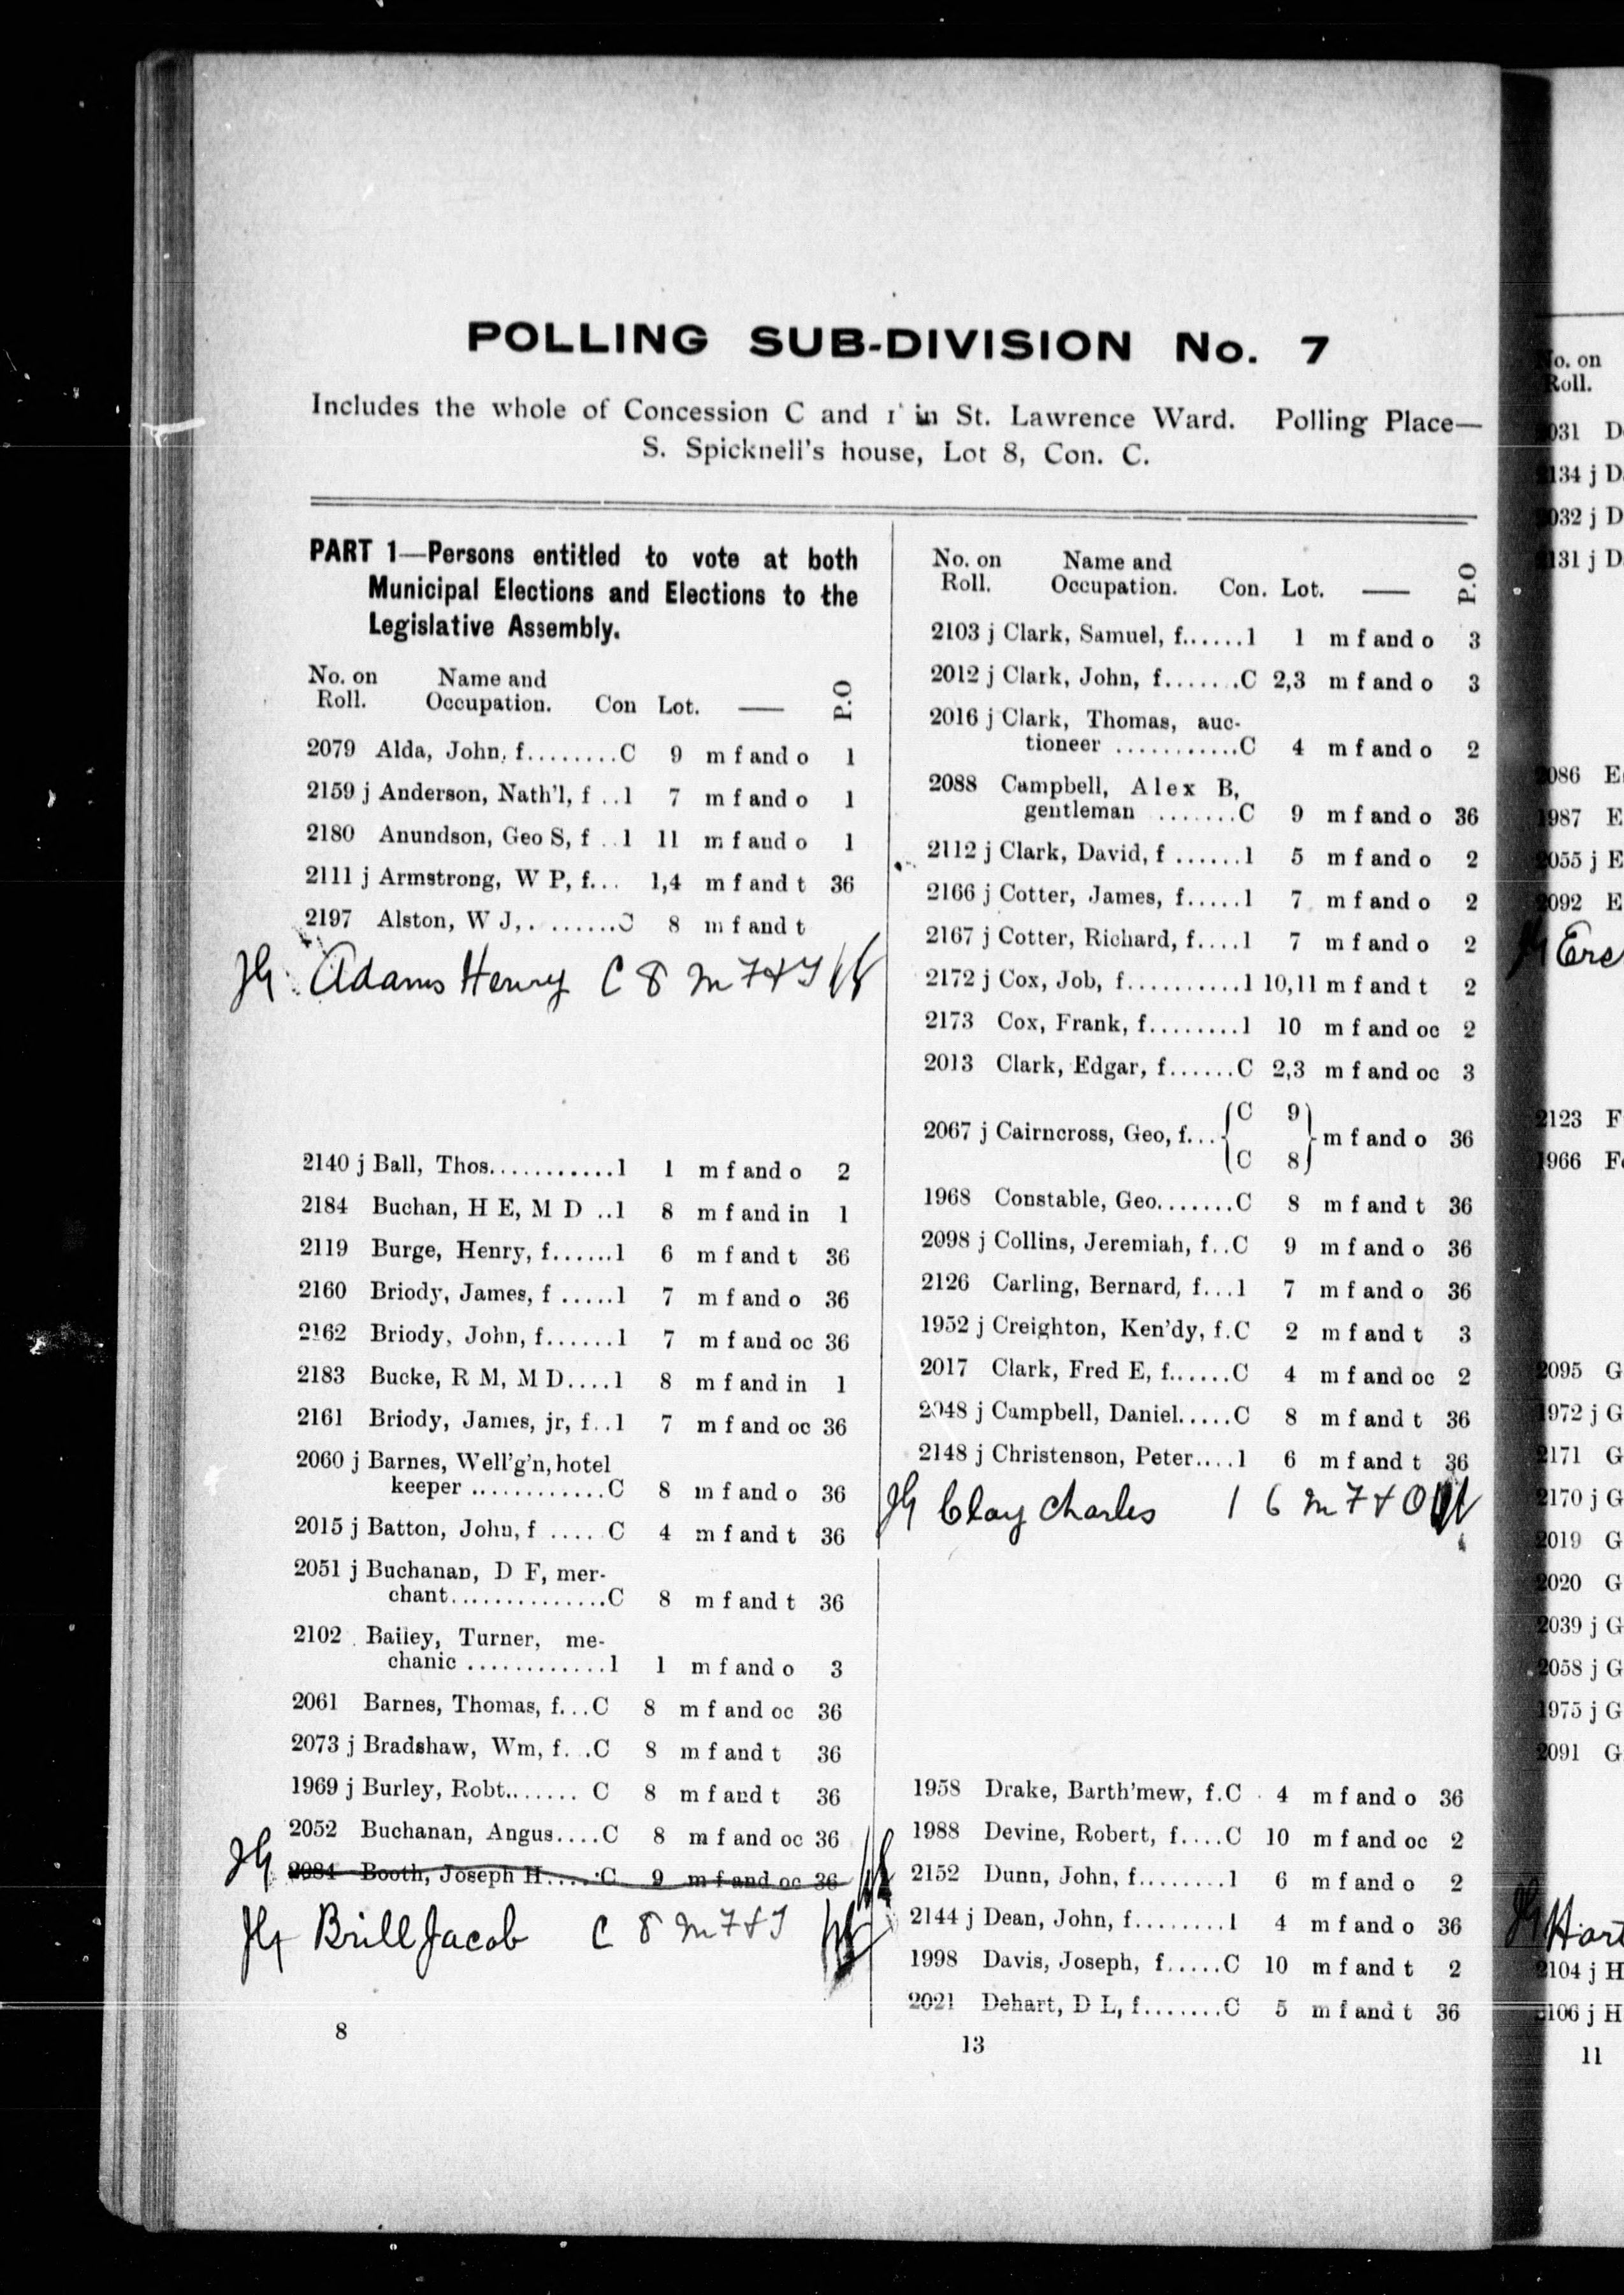 POLLING SUB-DIVISION No. 7
Includes the whole of Concession C and 1 in St. Lawrence Ward. Polling Place—
S. Spicknell's house, Lot 8, Con. C.
PART 1—Persons entitled to vote at both
Municipal Elections and Elections to the
Legislative Assembly.
No. on Name and
Roll. Occupation. Con Lot. — P.O
2079 Alda, John, f........C 9 m f and o 1
2159 j Anderson, Nath'l, f ..1 7 m f and o 1
2180 Anundson, Geo S, f ..1 11 m f and o 1
2111 j Armstrong, W P, f... 1,4 m f and t 36
2197 Alston, W J,. .......C 8 m f and t
JG Adams Henry C 8 m F & T
2140 j Ball, Thos...........1 1 m f and o 2
2184 Buchan, H E, M D ..1 8 m f and in 1
2119 Burge, Henry, f......1 6 m f and t 36
2160 Briody, James, f .....1 7 m f and o 36
2162 Briody, John, f......1 7 m f and oc 36
2183 Bucke, R M, M D....1 8 m f and in 1
2161 Briody, James, jr, f..1 7 m f and oc 36
2060 j Barnes, Well'g'n, hotel
keeper ............C 8 m f and o 36
2015 j Batton, John, f .... C 4 m f and t 36
2051 j Buchanan, D F, mer-
chant..............C 8 m f and t 36
2102 Bailey, Turner, me-
chanic ............1 1 m f and o 3
2061 Barnes, Thomas, f...C 8 m f and oc 36
2073 j Bradshaw, Wm, f. .C 8 m f and t 36
1969 j Burley, Robt....... C 8 m f and t 36
2052 Buchanan, Angus....C 8 m f and oc 36
JG 2084 Booth, Joseph H.....C 9 m f and oc 36
JG Brill Jacob C 8 m F & T
8
No. on Name and
Roll. Occupation. Con. Lot. — P.O
2103 j Clark, Samuel, f......1 1 m f and o 3
2012 j Clark, John, f.......C 2,3 m f and o 3
2016 j Clark, Thomas, auc-
tioneer ...........C 4 m f and o 2
2088 Campbell, Alex B,
gentleman .......C 9 m f and o 36
2112 j Clark, David, f ......1 5 m f and o 2
2166 j Cotter, James, f.....1 7 m f and o 2
2167 j Cotter, Richard, f....1 7 m f and o 2
2172 j Cox, Job, f..........1 10,11 m f and t 2
2173 Cox, Frank, f........1 10 m f and oc 2
2013 Clark, Edgar, f......C 2,3 m f and oc 3
C 9
2067 j Cairncross, Geo, f... m f and o 36
C 8
1968 Constable, Geo.......C 8 m f and t 36
2098 j Collins, Jeremiah, f..C 9 m f and o 36
2126 Carling, Bernard, f...1 7 m f and o 36
1952 j Creighton, Ken'dy, f.C 2 m f and t 3
2017 Clark, Fred E, f......C 4 m f and oc 2
2048 j Campbell, Daniel.....C 8 m f and t 36
2148 j Christenson, Peter....1 6 m f and t 36
JG Clay Charles 1 6 m F & O
1958 Drake, Barth'mew, f.C 4 m f and o 36
1988 Devine, Robert, f....C 10 m f and oc 2
2152 Dunn, John, f........1 6 m f and o 2
2144 j Dean, John, f........1 4 m f and o 36
1998 Davis, Joseph, f.....C 10 m f and t 2
2021 Dehart, D L, f.......C 5 m f and t 36
13
No. on
Roll.
2031 D
2134 j D
2032 j D
2131 j D
2086 E
1987 E
2055 j E
2092 E
JG
2123 F
1966 F
2095 G
1972 j G
2171 G
2170 j G
2019 G
2020 G
2039 j G
2058 j G
1975 j G
2091 G
JG Hart
2104 j H
2106 j H
11